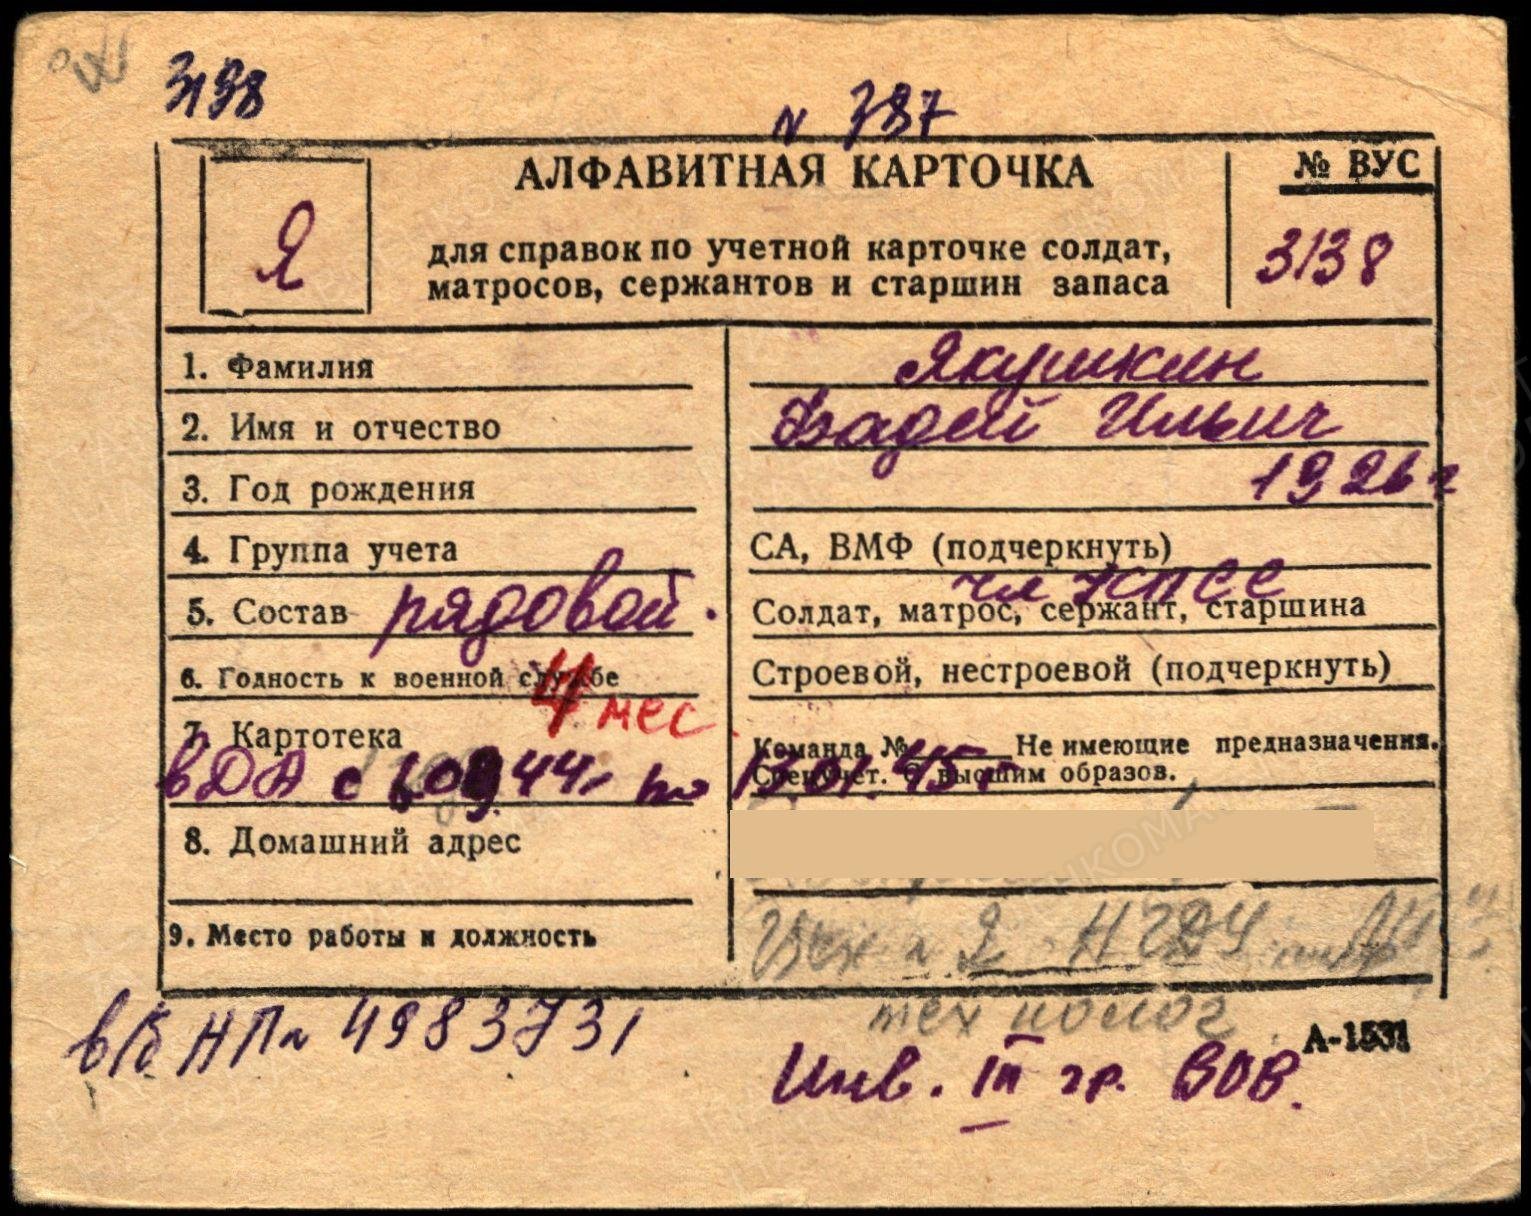 3198
N 787
АЛФАВИТНАЯ КАРТОЧКА
№ ВУС
Я
для справок по учетной карточке солдат,
матросов, сержантов и старшин запаса
3138
1. Фамилия
Якушкин
2. Имя и отчество
Фадей Ильич
3. Год рождения
1926 г
4. Группа учета
СА, ВМФ (подчеркнуть)
чл КПСС
5. Состав рядовой.
Солдат, матрос, сержант, старшина
6. Годность к военной службе
Строевой, нестроевой (подчеркнуть)
4 мес
7. Картотека
Команда № Не имеющие предназначения.
Спецучет. С высшим образов.
в ДА с 09 44г по 13 01.45 г
8. Домашний адрес
9. Место работы и должность
Цех N 2 НГДУ
технолог
в/б НП N 4983731
А-1531
Инв. III гр. ВОВ.